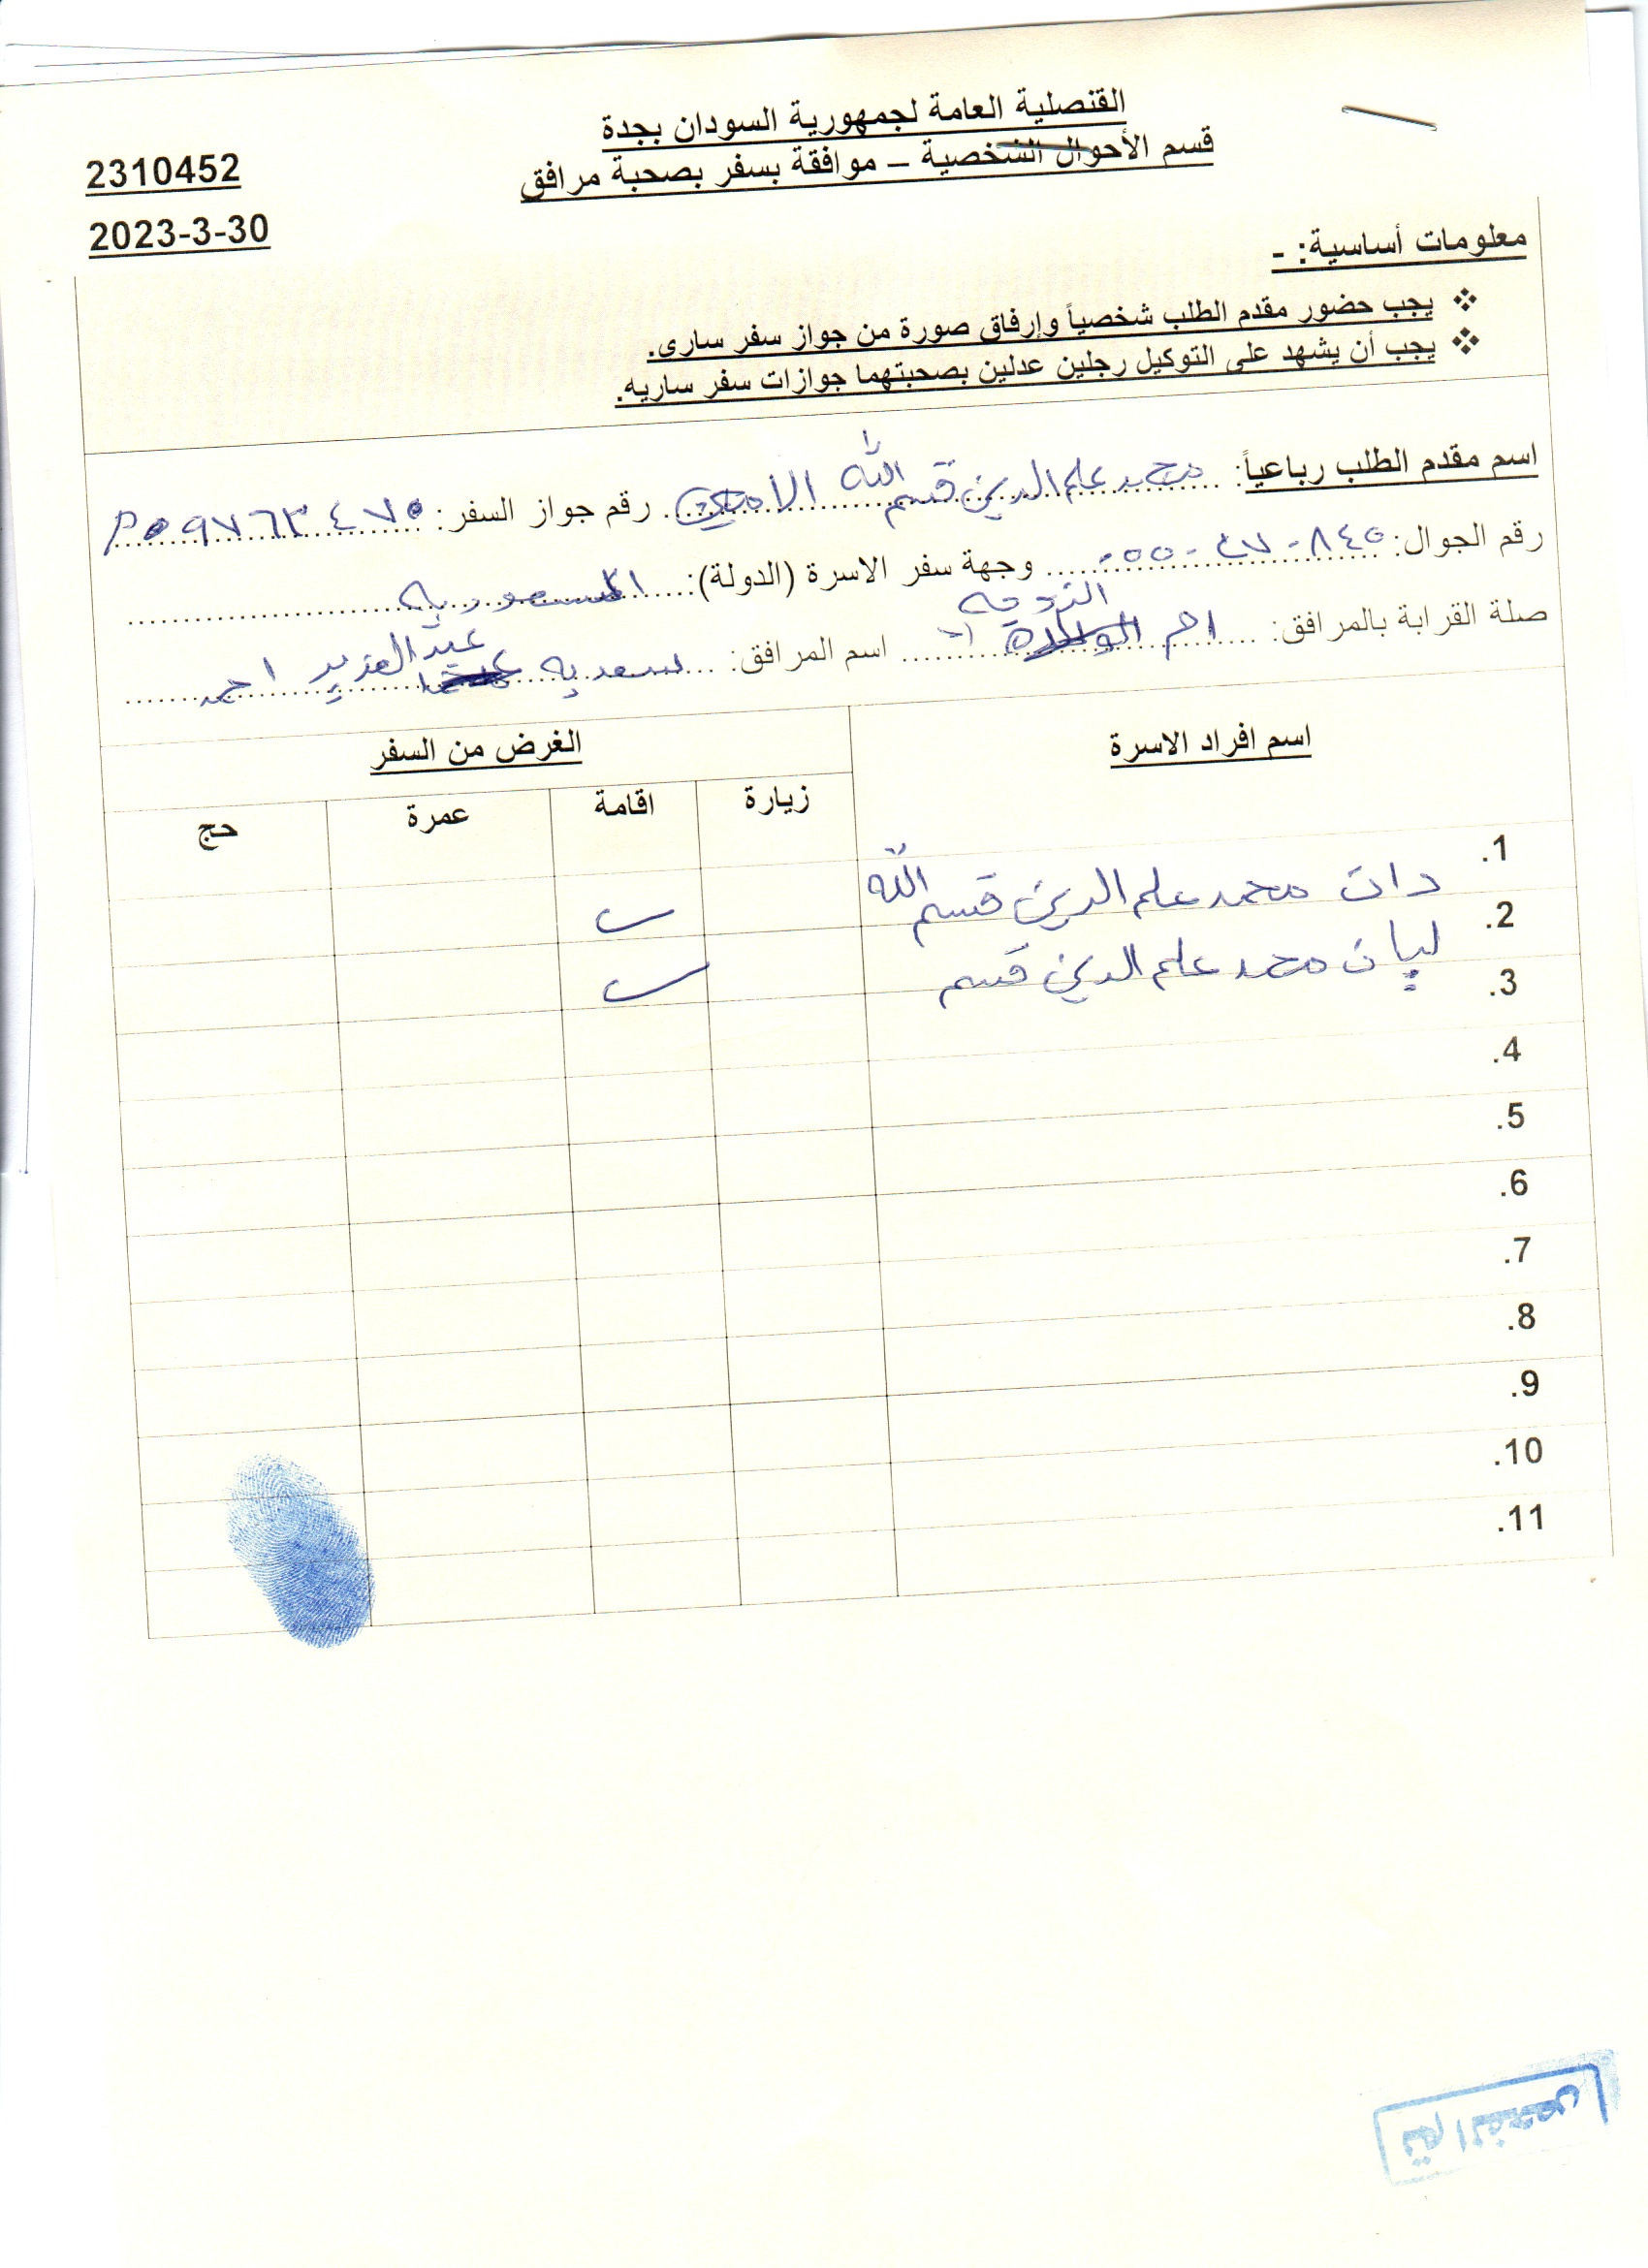 القنصلية العامة لجمهورية السودان بجدة
قسم الأحوال الشخصية – موافقة بسفر بصحبة مرافق
2310452
2023-3-30
معلومات أساسية: -
❖ يجب حضور مقدم الطلب شخصياً وإرفاق صورة من جواز سفر سارى.
❖ يجب أن يشهد على التوكيل رجلين عدلين بصحبتهما جوازات سفر ساريه.
اسم مقدم الطلب رباعياً: محمد علم الدين قسم الله الامين رقم جواز السفر: P٠٩٧٦٣٤٧٥
رقم الجوال: ٠٥٥٠٤٧٠٨٤٥ وجهة سفر الاسرة (الدولة): السعوديه
صلة القرابة بالمرافق: الزوجه اسم المرافق: سعديه عبدالعزيز احمد
اسم افراد الاسرة الغرض من السفر
زيارة اقامة عمرة حج
1. دان محمد علم الدين قسم الله
2. ليان محمد علم الدين قسم
3.
4.
5.
6.
7.
8.
9.
10.
11.
تم الفحص